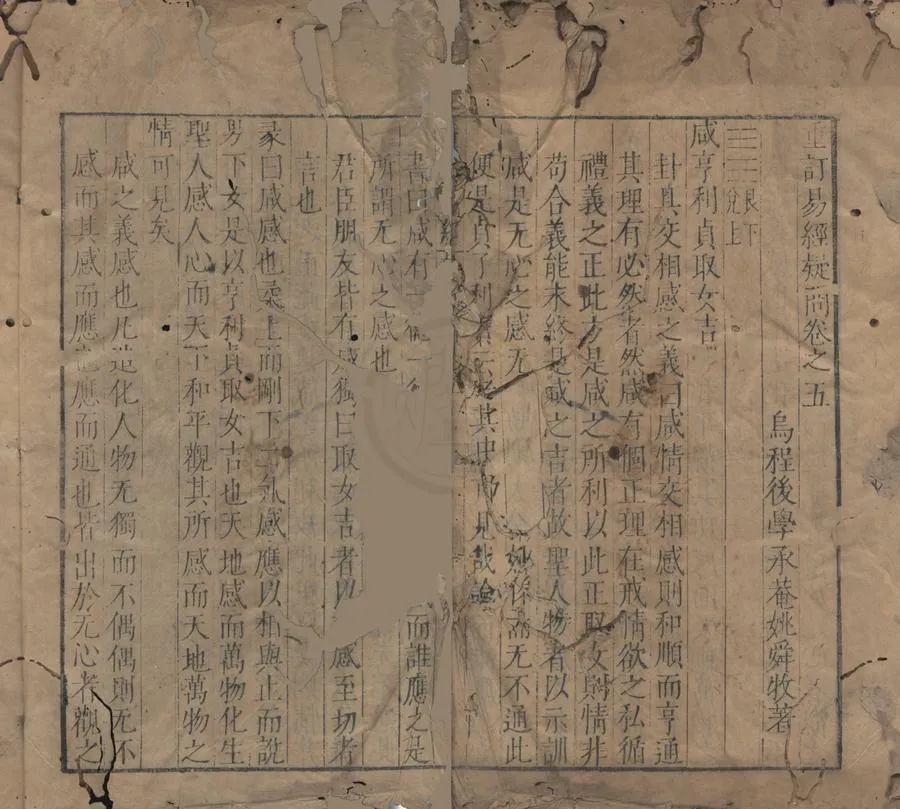 重訂易經疑問卷之五
烏程後學承菴姚舜牧著
艮下
兌上
咸亨利貞取女吉
卦具交相感之義曰咸情交相感則和順而亨通
其理有必然者然咸有個正理在戒情欲之私循
禮義之正此方是咸之所利以此正取女與情非
苟合義能末終是咸之吉者故聖人物者以示訓
咸是无心之感无 无不通此
便是貞了利 其中 見哉論
書曰咸有一 而誰應之是
所謂无心之感也
君臣朋友皆有感獨曰取女吉者以 感至切者
言也
彖曰咸感也柔上而剛下二氣感應以相與止而說
男下女是以亨利貞取女吉也天地感而萬物化生
聖人感人心而天下和平觀其所感而天地萬物之
情可見矣
咸之義感也凡造化人物无獨而不偶偶則无不
感而其感而應也應而通也皆出於无心者觀之